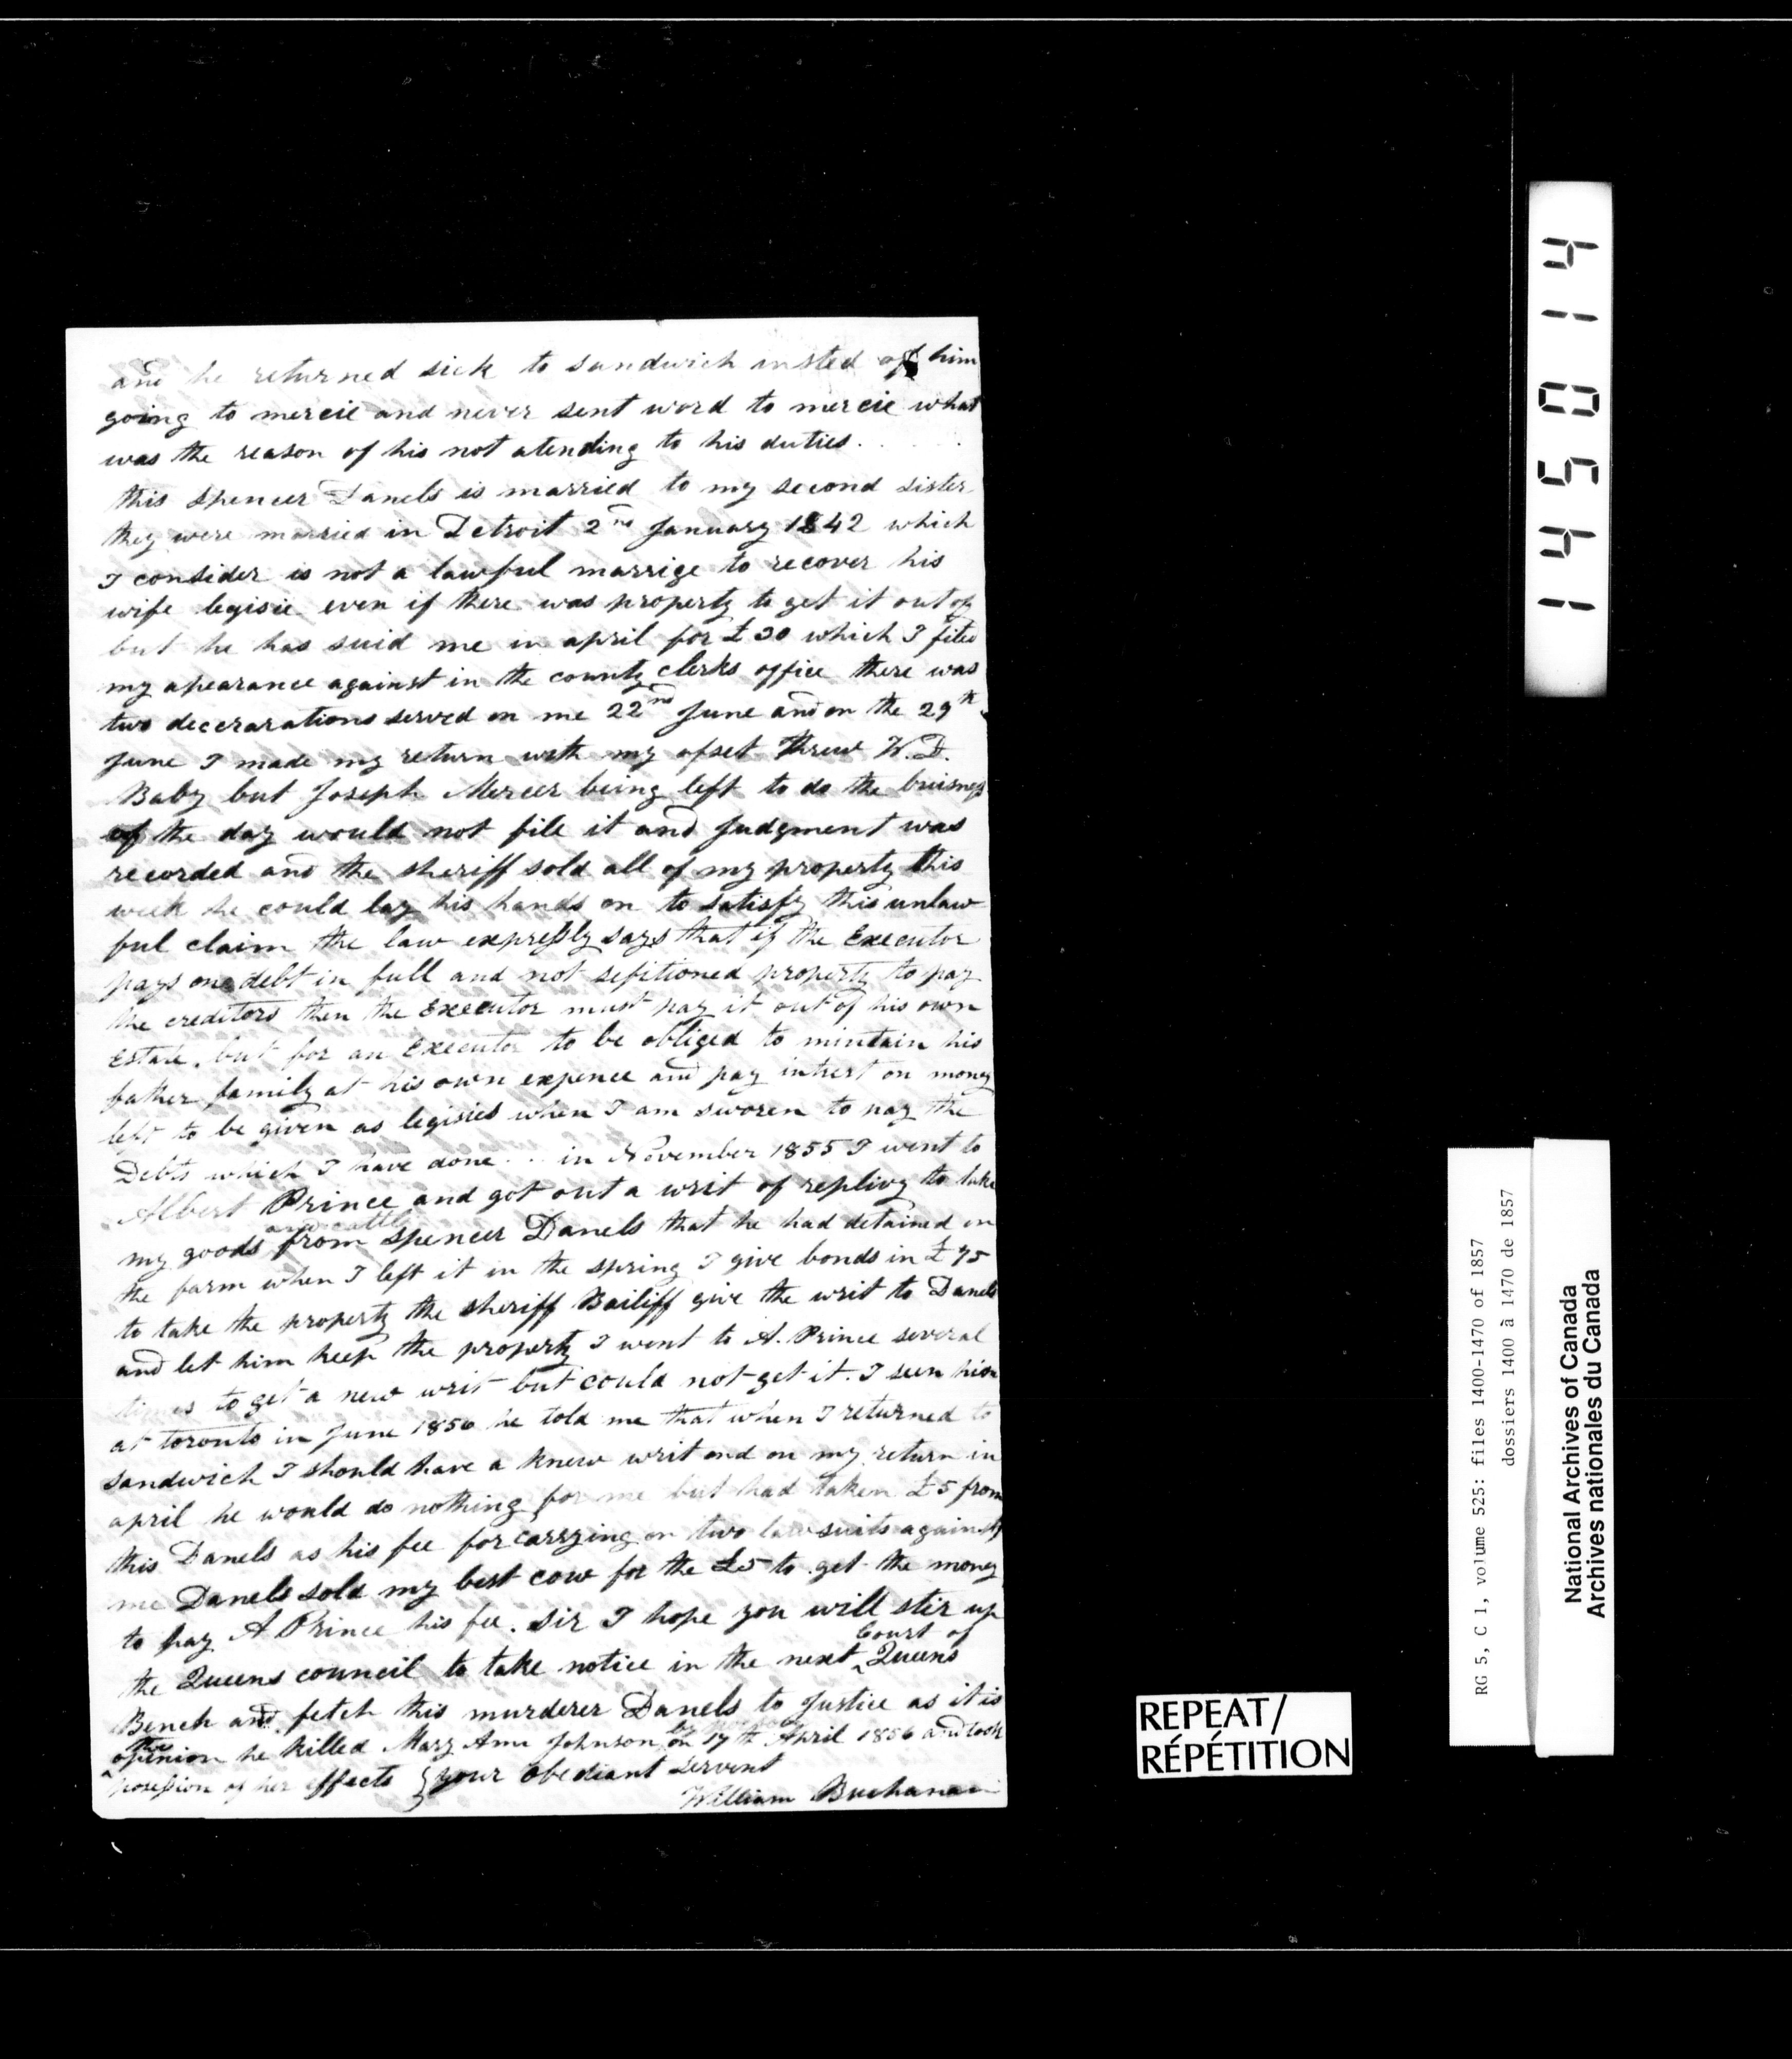 and he returned sick to sandwich insted of him
going to mercie and never sent word to mercie what
was the reason of his not atending to his duties.
this Spencer Danels is married to my second sister
they were married in Detroit 2nd January 1842 which
I consider is not a lawful marrige to recover his
wife legisie even if there was property to get it out of
but he has suid me in april for £30 which I filed
my apearance against in the county clerks office there was
two decerarations served on me 22nd June and on the 29th
June I made my return with my ofset threw W.D.
Baby but Joseph Mercer being left to do the buisness
of the day would not file it and Judgment was
recorded and the sheriff sold all of my property this
week he could lay his hands on to satisfy this unlaw
ful claim the law expressly says that if the Executor
pays one debt in full and not sefitioned property to pay
the creditors then the Executor must pay it out of his own
Estate. but for an Executor to be obliged to mintain his
father family at his own expence and pay intrest on money
left to be given as legisies when I am sworen to pay the
Debts which I have done ... in November 1855 I went to
Albert Prince and got out a writ of replivy to take
my goods and cattle from Spencer Danels that he had detained on
the farm when I left it in the spring I give bonds in £75
to take the property the sheriff Bailiff give the writ to Danels
and let him keep the property I went to A. Prince several
times to get a new writ but could not get it. I seen him
at toronto in June 1856 he told me that when I returned to
sandwich I should have a knew writ and on my return in
april he would do nothing for me but had taken £5 from
this Danels as his fee for carrying on two law suits against
me Danels sold my best cow for the £5 to get the money
to pay A Prince his fee. Sir I hope you will stir up
the Queens council to take notice in the next Court of Queens
Bench and fetch this murderer Danels to Justice as it is
the opinion he killed Mary Ann Johnson on 17th April 1856 and took
posession of her effects } your obediant servent
William Buchanan
145014
RG 5, C 1, volume 525: files 1400-1470 of 1857
dossiers 1400 à 1470 de 1857
National Archives of Canada
Archives nationales du Canada
REPEAT/
RÉPÉTITION